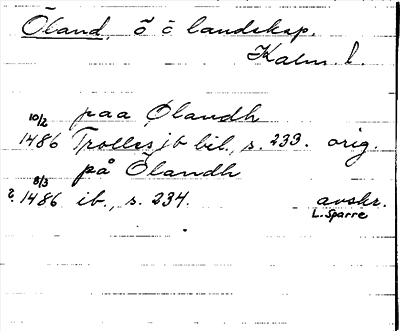 Öland. ö o landskap.
Kalm. l.
paa Ølandh
10/2 1486 Trolles jb bil., s. 233. orig.
på Ölandh
8/3
?. 1486 ib., s. 234. avskr.
L. Sparre